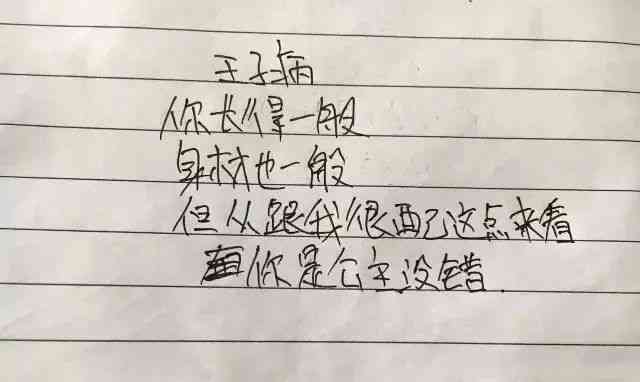 王子病
你长得一般
身材也一般
但从跟我很配这点来看
你是公主没错